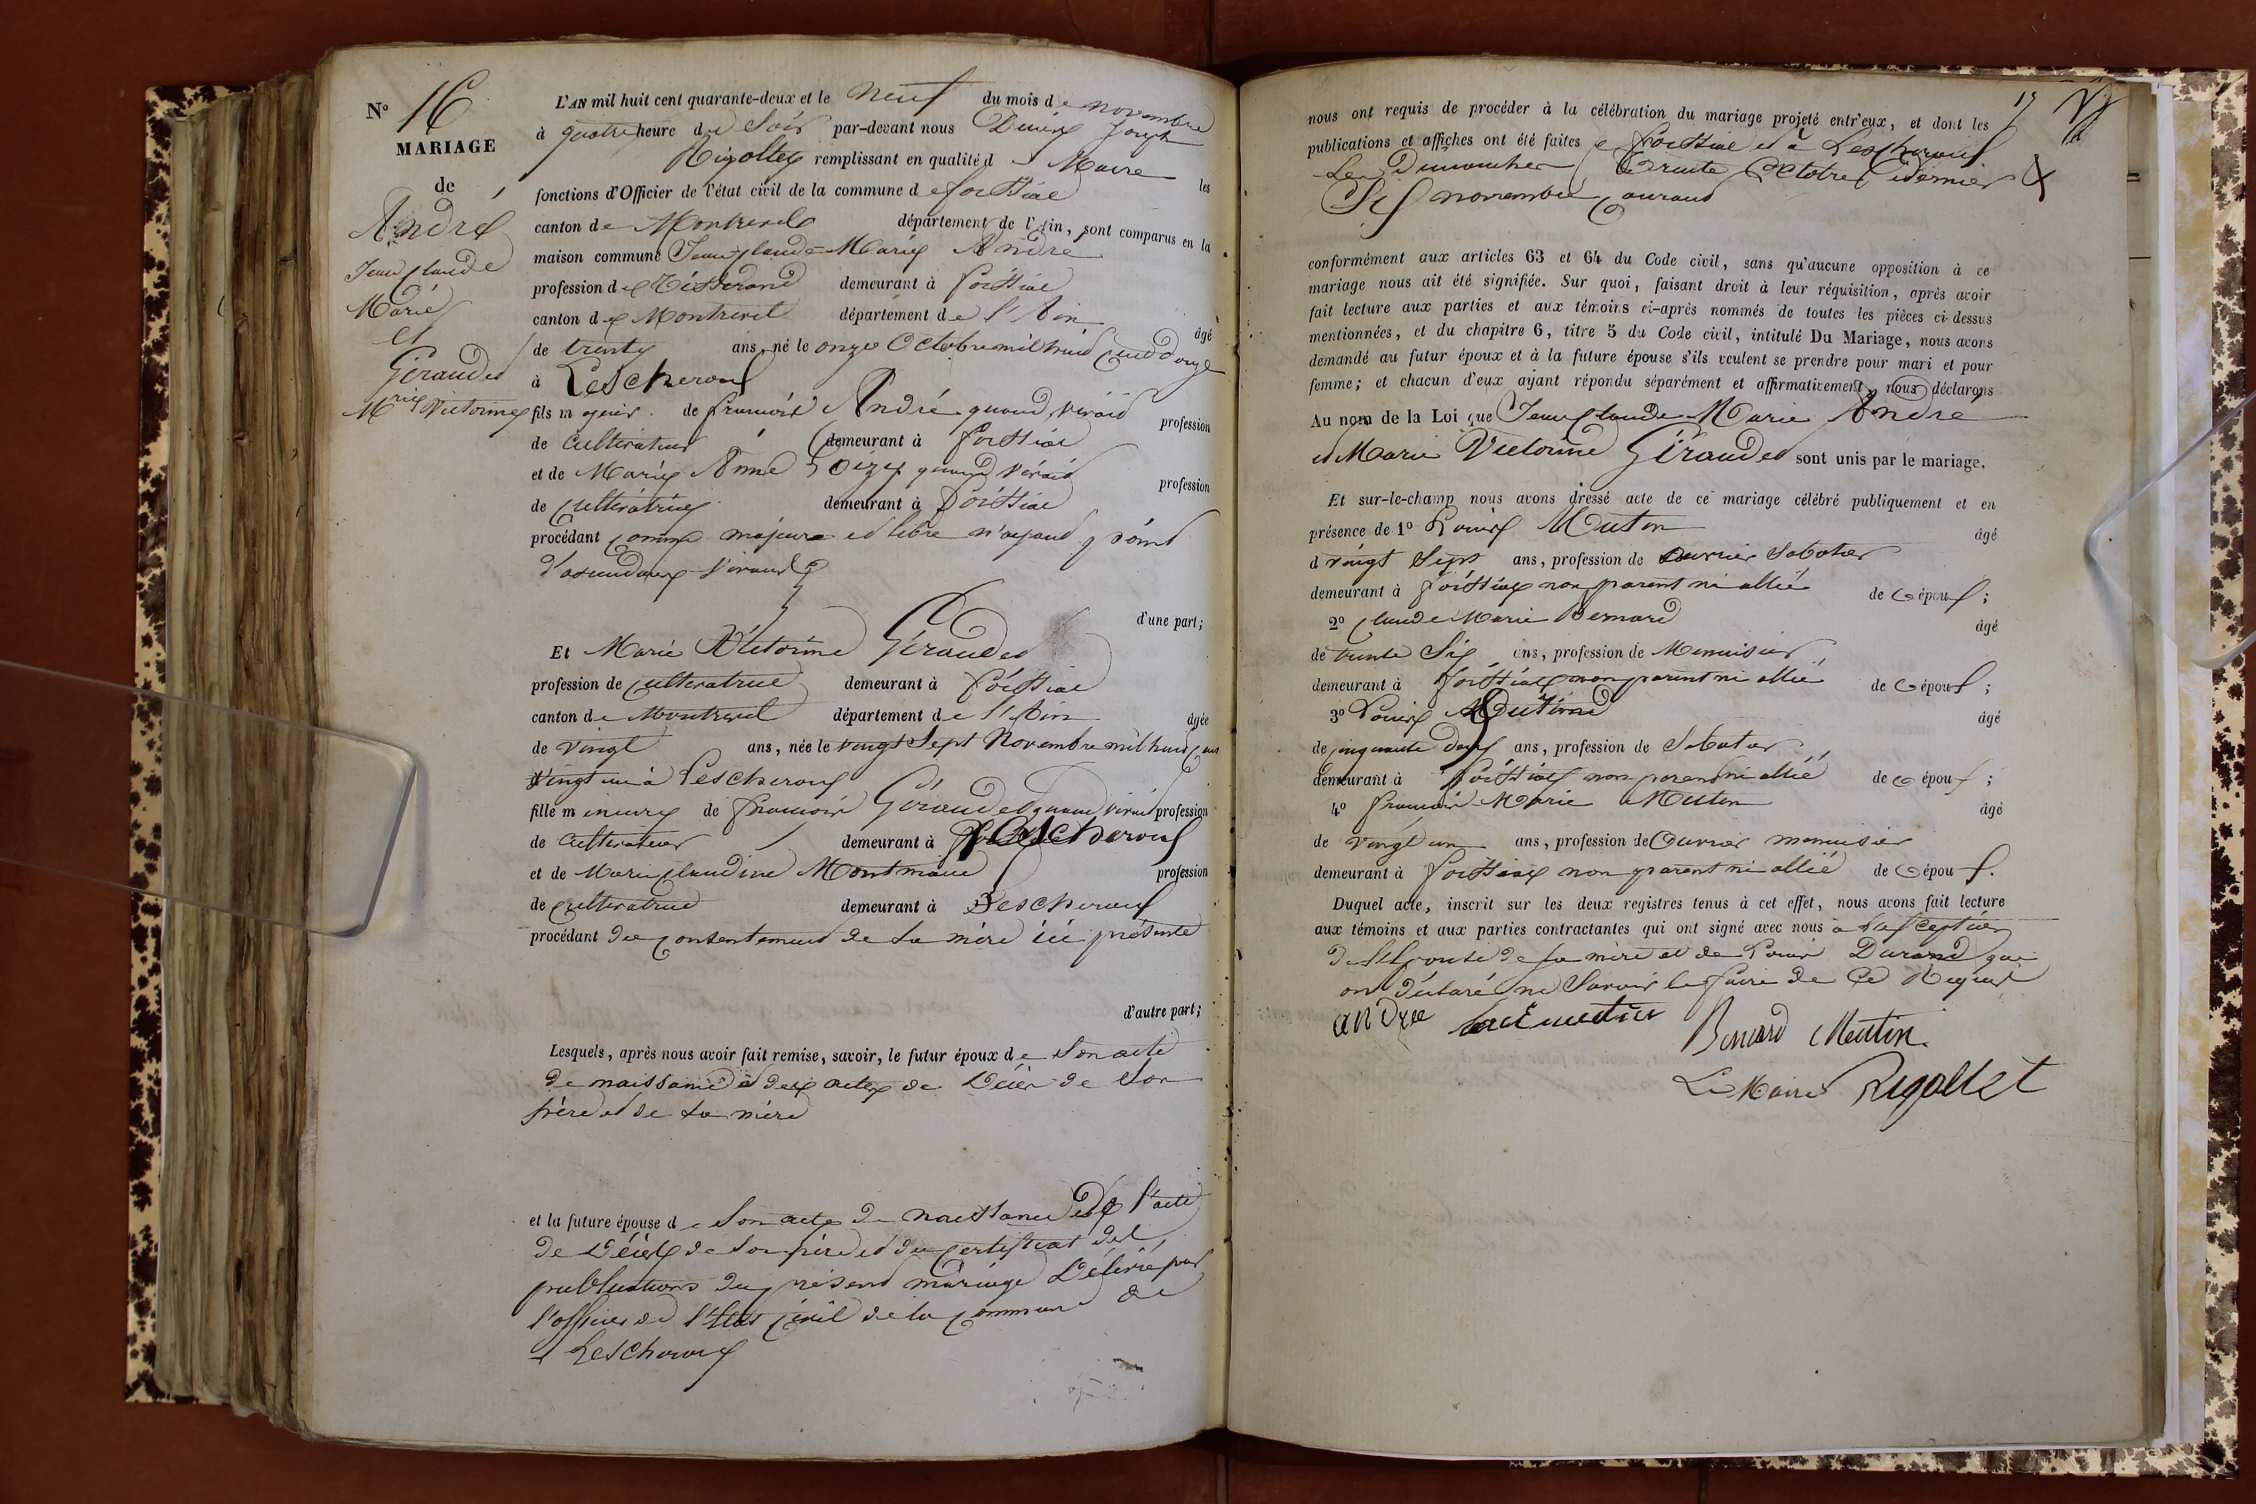 N° 16
MARIAGE
de
André
Jean Claude
Marie
et
Giraudet
Mrie Victorine
L'AN mil huit cent quarante-deux et le neuf du mois de novembre
à quatre heure du Soir par-devant nous Denis Joseph
Rigollet remplissant en qualité de Maire les
fonctions d'Officier de l'état civil de la commune de foissiat
canton de Montrevel département de l'Ain, sont comparus en la
maison commune Jean Claude Marie André
profession de Tisserand demeurant à foissiat
canton de Montrevel département de l'Ain âgé
de trente ans, né le onze Octobre mil huit Cent douze
à Lescheroux
fils majeur de francois André quand vivait profession
de Cultivateur demeurant à foissiat
et de Marie Anne quand vivait profession
de Cultivatrice demeurant à foissiat
procédant Comme majeur et libre n'ayant point
d'ascendans vivant
d'une part;
Et Marie Victorine Giraudet
profession de Cultivatrice demeurant à foissiat
canton de Montrevel département de l'Ain âgée
de vingt ans, née le vingt Sept Novembre mil huit Cent
vingt un à Lescheroux
fille mineure de francois Giraudet quand vivait profession
de Cultivateur demeurant à Lescheroux
et de Marie Claudine profession
de Cultivatrice demeurant à Lescheroux
procédant du Consentement de Sa mère ici présente
d'autre part;
Lesquels, après nous avoir fait remise, savoir, le futur époux de Son acte
de naissance et des actes de Décès de Son
père et de Sa mère
et la future épouse de Son acte de naissance de l'acte
de Décès de Son père et du Certificat des
publications du présent mariage Délivré par
l'officier de l'état Civil de la Commune de
Lescheroux
17
nous ont requis de procéder à la célébration du mariage projeté entr'eux, et dont les
publications et affiches ont été faites à foissiat et à Lescheroux
Les Dimanches trente Octobre Dernier &
Six novembre Courant
conformément aux articles 63 et 64 du Code civil, sans qu'aucune opposition à ce
mariage nous ait été signifiée. Sur quoi, faisant droit à leur réquisition, après avoir
fait lecture aux parties et aux témoins ci-après nommés de toutes les pièces ci-dessus
mentionnées, et du chapitre 6, titre 5 du Code civil, intitulé Du Mariage, nous avons
demandé au futur époux et à la future épouse s'ils veulent se prendre pour mari et pour
femme; et chacun d'eux ayant répondu séparément et affirmativement, nous déclarons
Au nom de la Loi que Jean Claude Marie André
et Marie Victorine Giraudet sont unis par le mariage.
Et sur-le-champ nous avons dressé acte de ce mariage célébré publiquement et en
présence de 1° Louis Mutin âgé
de vingt Sept ans, profession de ouvrier Sabotier
demeurant à foissiat non parent ni allié de l'époux;
2° Claude Marie Bernard âgé
de trente Six ans, profession de Menuisier
demeurant à foissiat non parent ni allié de l'époux;
3° Louis âgé
de Cinquante Deux ans, profession de Sabotier
demeurant à foissiat non parent ni allié de l'époux;
4° francois Marie Mutin âgé
de vingt un ans, profession de Ouvrier menuisier
demeurant à foissiat non parent ni allié de l'époux.
Duquel acte, inscrit sur les deux registres tenus à cet effet, nous avons fait lecture
aux témoins et aux parties contractantes qui ont signé avec nous à l'exception
de l'Epouse de Sa mère et de Louis Durand qui
ont déclaré ne Savoir le faire de Ce Requis
andre mutin
Bernard Mutin
Le Maire Rigollet